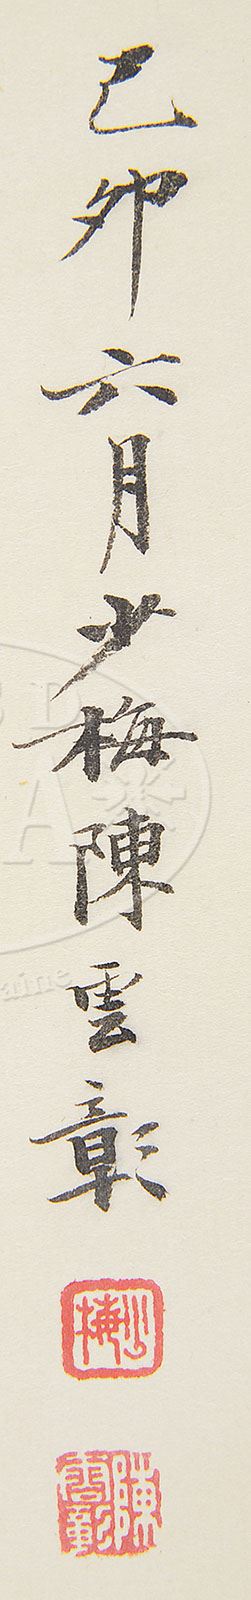 己卯六月少梅陳雲彰
少梅
陳雲彰